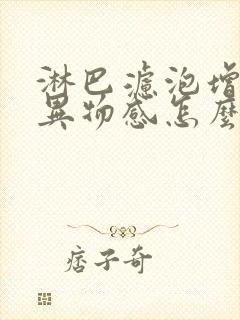 淋巴濾泡增
異物感怎麼
痞子奇